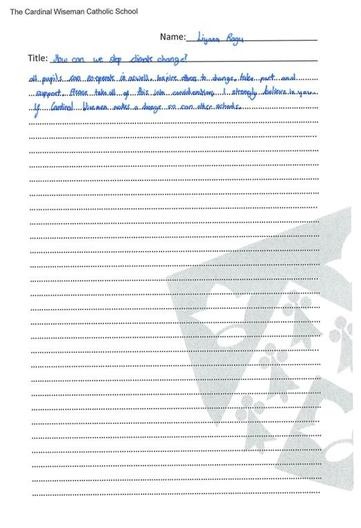 The Cardinal Wiseman Catholic School
Name: Liyana Ragu
Title: How can we stop climate change?
all pupils can co-operate in aswell. Inspire others to change, take part and
support. Please take all of this into consideration, I strongly believe in you.
If Cardinal Wiseman makes a change so can other schools.